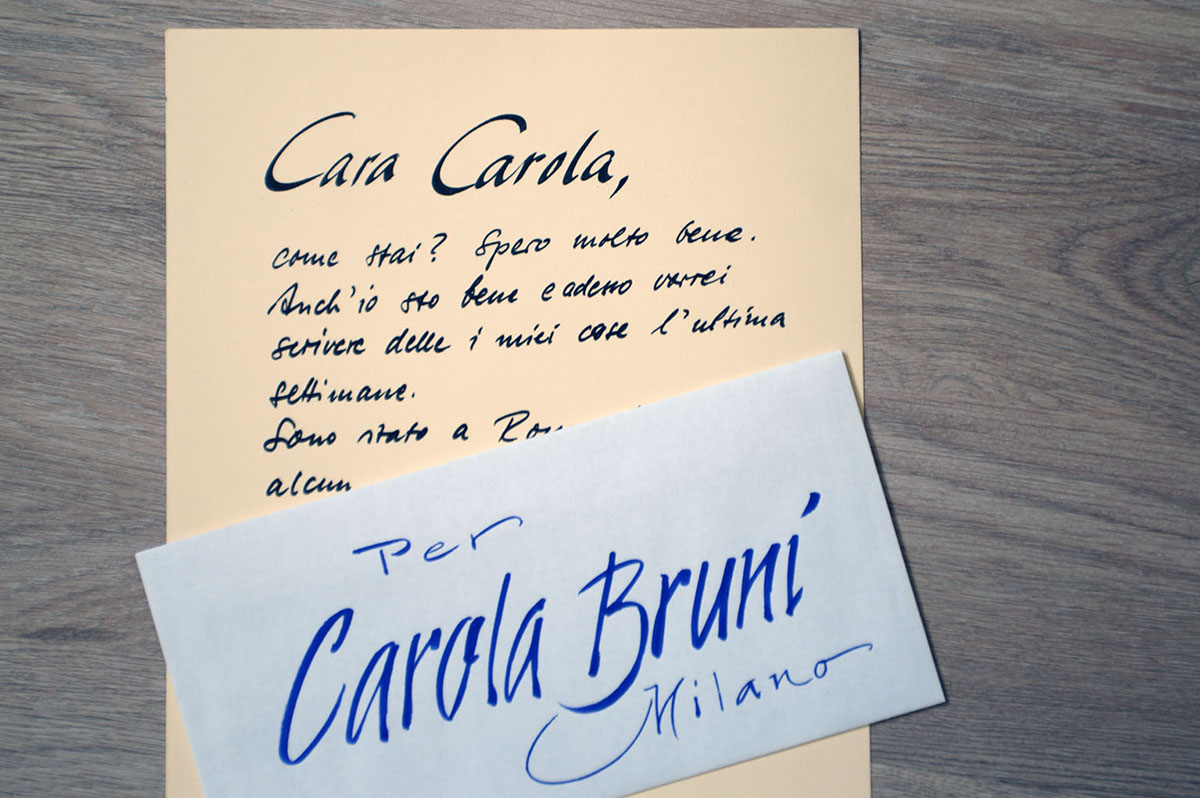 Cara Carola,
come stai? Spero molto bene.
Anch'io sto bene e adesso vorrei
scrivere delle i miei case l'ultima
settimane.
Sono stato a Rom
alcun
Per
Carola Bruni
Milano